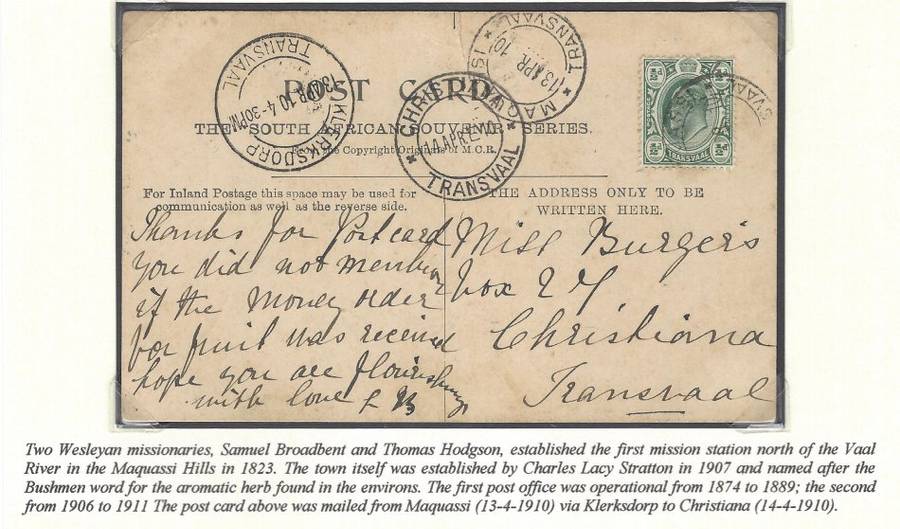 POST CARD.
THE SOUTH AFRICAN SOUVENIR SERIES.
From the Copyright Originals of M.O.R.
KLERKSDORP
TRANSVAAL
13 APR 10 4-30PM
CHRISTIANA
14 APR
TRANSVAAL
MAQUASSI
TRANSVAAL
13 APR 10
½D ½D
½D ½D
TRANSVAAL
For Inland Postage this space may be used for
communication as well as the reverse side.
THE ADDRESS ONLY TO BE
WRITTEN HERE.
Thanks for Postcard
you did not mention
if the money order
for fruit was received
hope you are flourishing
with love
Miss Burgers
box 27
Christiana
Transvaal
Two Wesleyan missionaries, Samuel Broadbent and Thomas Hodgson, established the first mission station north of the Vaal
River in the Maquassi Hills in 1823. The town itself was established by Charles Lacy Stratton in 1907 and named after the
Bushmen word for the aromatic herb found in the environs. The first post office was operational from 1874 to 1889; the second
from 1906 to 1911 The post card above was mailed from Maquassi (13-4-1910) via Klerksdorp to Christiana (14-4-1910).